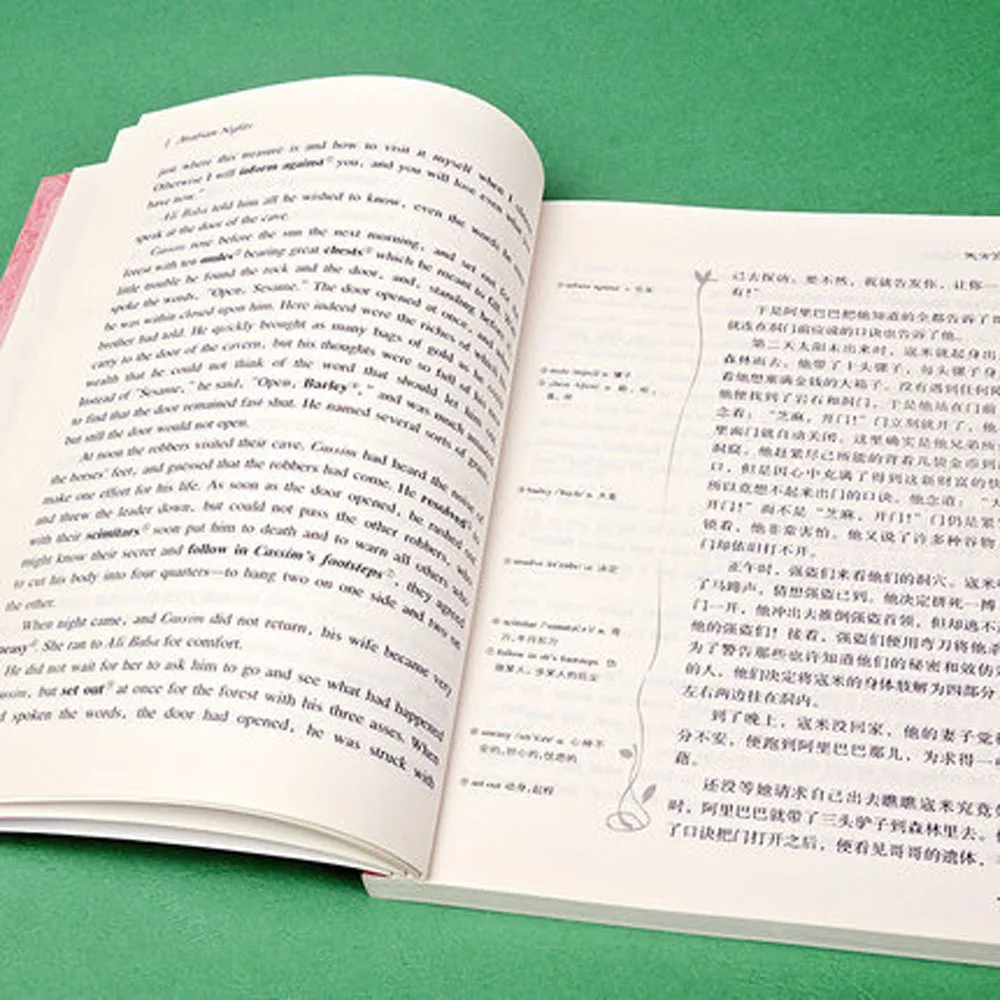 Arabian Nights
just where this treasure is and how to visit it myself when I
Otherwise I will inform against① you, and you will lose even what you
have now."
Ali Baba told him all he wished to know, even the words he must
speak at the door of the cave.
Cassim rose before the sun the next morning, and set out for the
forest with ten mules② bearing great chests③ which he meant to fill. With
little trouble he found the rock and the door, and, standing before it,
spoke the words, "Open, Sesame." The door opened at once, and when
he was within closed upon him. Here indeed were the riches of which his
brother had told. He quickly brought as many bags of gold as he could
carry to the door of the cavern, but his thoughts were so full of his new
wealth that he could not think of the word that should let him out.
Instead of "Sesame," he said, "Open, Barley④," and was much amazed
to find that the door remained fast shut. He named several sorts of grain,
but still the door would not open.
At noon the robbers visited their cave. Cassim had heard the noise of
the horses' feet, and guessed that the robbers had come. He resolved⑤ to
make one effort for his life. As soon as the door opened, he rushed out
and threw the leader down, but could not pass the other robbers, who
with their scimitars⑥ soon put him to death and to warn all others who
might know their secret and follow in Cassim's footsteps⑦, they agreed
to cut his body into four quarters—to hang two on one side and two on
the other.
When night came, and Cassim did not return, his wife became very
uneasy⑧. She ran to Ali Baba for comfort.
He did not wait for her to ask him to go and see what had happened
Cassim, but set out⑨ at once for the forest with his three asses. When
spoken the words, the door had opened, he was struck with
② mule n. 骡子
④ barley n. 大麦
⑤ v. 决定
⑥ scimitar n. 弯
刀,半月形刀
⑦ follow in sb's footsteps 仿
效某人,步某人的后尘
⑧ uneasy a. 心神不
安的,担心的,忧虑的
⑨ set out 动身,起程
己去探访。要不然,我就告发你,让你一
有!"
于是阿里巴巴把他知道的全都告诉了
就连在洞门前应说的口诀也告诉了他。
第二天太阳未出来时,寇米就起身出
森林而去。他带了十头骡子,每头骡子身
着他想来满金钱的大箱子。没有遇到任何
他便找到了岩石和洞门,于是他站在门前
念着:"芝麻,开门!"门立刻就开了,他
里面门就自动关闭。这里确实是他兄弟所
洞窟。他赶紧尽己所能的背着几袋金币到
口,但是因心中充满了得到这新财富的快
所以竟想不起来出门的口诀。他念道:"大
开门!"而不是"芝麻,开门!"门仍是紧
锁着,他非常害怕。他又说了许多种谷物
门却依旧打不开。
正午时,强盗们来看他们的洞穴。寇米
了马蹄声,猜想强盗已到。他决定拼死一搏
门一开,他冲出去推倒强盗首领,但却逃不
他的强盗们!接着,强盗们使用弯刀将他杀
为了警告那些也许知道他们的秘密和效仿
的人,他们决定将寇米的身体肢解为四部分
左右两边挂在洞内。
到了晚上,寇米没回家,他的妻子觉得
分不安,便跑到阿里巴巴那儿,为求得一
藉。
还没等她请求自己出去瞧瞧寇米究竟
时,阿里巴巴就带了三头驴子到森林里去。
了口诀把门打开之后,便看见哥哥的遗体,